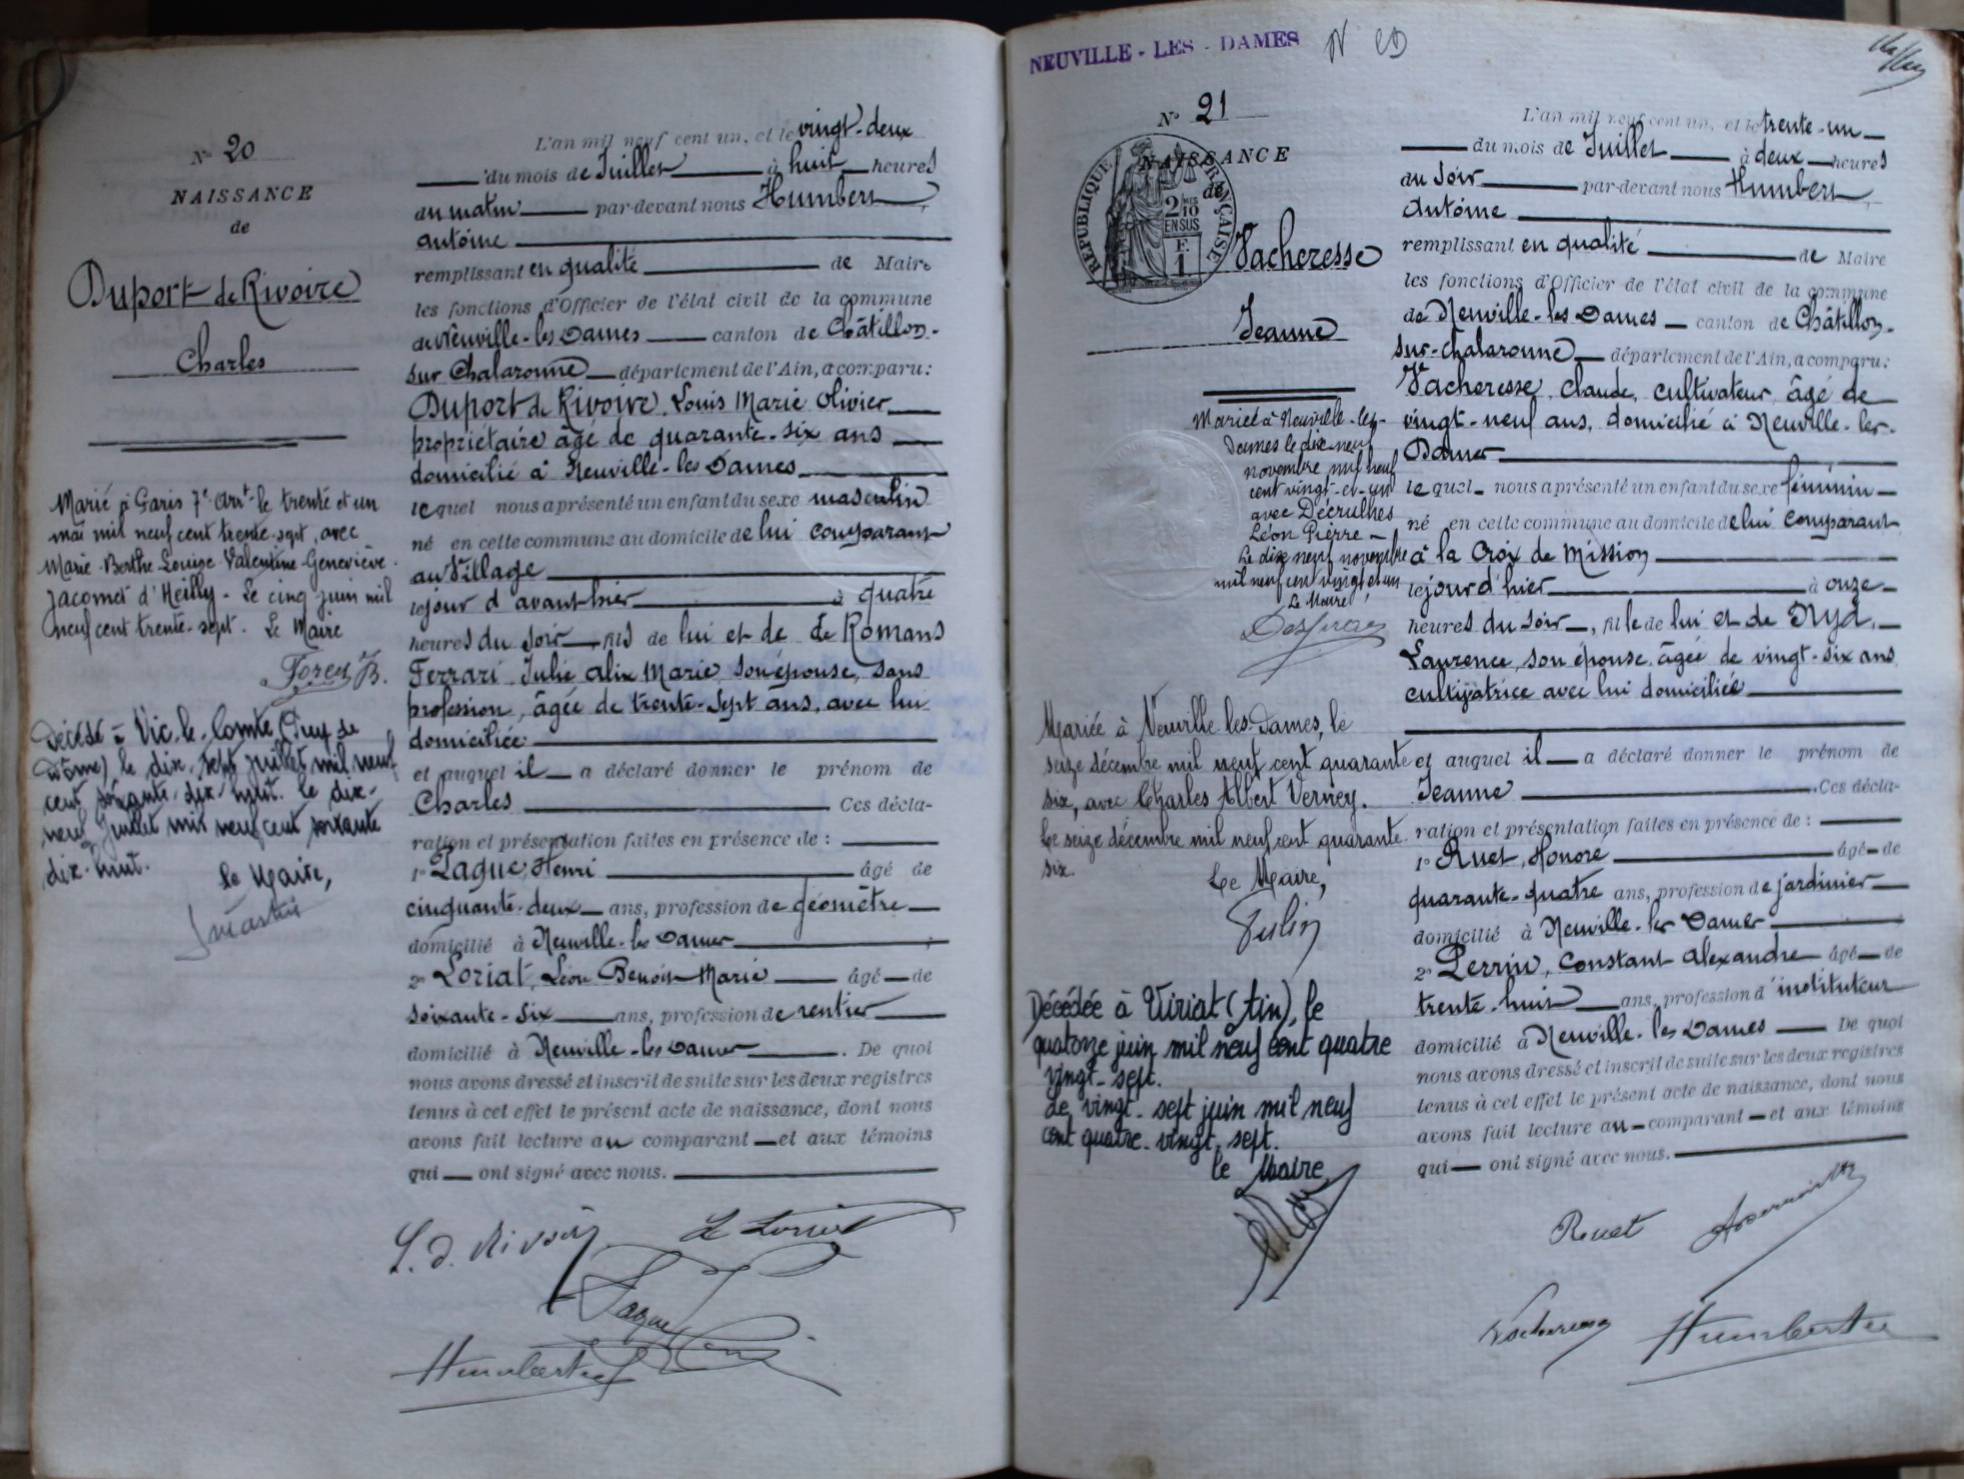 N° 20
NAISSANCE
de
Duport de Rivoire
Charles
Marié à Paris 7e arrt le trente et un
mai mil neuf cent trente-sept, avec
Marie-Berthe-Louise-Valentine-Geneviève
Jacomet d'Heilly - Le cinq juin mil
neuf cent trente-sept. Le Maire
Décédé à Vic-le-Comte (Puy de
Dôme) le dix-sept juillet mil neuf
cent soixante-dix-huit. Le dix-
neuf juillet mil neuf cent soixante
dix-huit.
Le Maire,
L'an mil neuf cent un, et le vingt-deux
du mois de Juillet à huit heures
du matin par-devant nous Humbert
Antoine
remplissant en qualité de Maire
les fonctions d'Officier de l'état civil de la commune
de Neuville-les-Dames canton de Châtillon-
sur Chalaronne département de l'Ain, a comparu:
Duport de Rivoire, Louis Marie Olivier
propriétaire âgé de quarante-six ans
domicilié à Neuville-les-Dames
lequel nous a présenté un enfant du sexe masculin
né en cette commune au domicile de lui comparant
au Village
le jour d'avant-hier à quatre
heures du soir fils de lui et de de Romans
Ferrari Julie Alix Marie, son épouse, sans
profession, âgée de trente-sept ans, avec lui
domiciliée
et auquel il a déclaré donner le prénom de
Charles Ces décla-
ration et présentation faites en présence de :
1° Lague, Henri âgé de
cinquante-deux ans, profession de géomètre
domicilié à Neuville-les-Dames
2° Loriat, Léon Benoît Marie âgé de
soixante-six ans, profession de rentier
domicilié à Neuville-les-Dames. De quoi
nous avons dressé et inscrit de suite sur les deux registres
tenus à cet effet le présent acte de naissance, dont nous
avons fait lecture au comparant et aux témoins
qui ont signé avec nous.
L. d. Rivoire
Lague
NEUVILLE - LES - DAMES
N° 21
NAISSANCE
de
RÉPUBLIQUE FRANÇAISE
2/10 EN SUS
F. 1
Vacheresse
Jeanne
Mariée à Neuville-les-
Dames le dix-neuf
novembre mil neuf
cent vingt-et-un
avec Décrulhes
Léon Pierre
Le dix neuf novembre
mil neuf cent vingt et un
Le Maire,
Mariée à Neuville les-Dames, le
seize décembre mil neuf cent quarante
six, avec Charles Albert Verney.
Le seize décembre mil neuf cent quarante
six.
Le Maire,
Décédée à Viriat (Ain), le
quatorze juin mil neuf cent quatre
vingt-sept.
Le vingt-sept juin mil neuf
cent quatre-vingt-sept.
le Maire
L'an mil neuf cent un, et le trente-un
du mois de Juillet à deux heures
du soir par-devant nous Humbert
Antoine
remplissant en qualité de Maire
les fonctions d'Officier de l'état civil de la commune
de Neuville-les-Dames canton de Châtillon-
sur-Chalaronne département de l'Ain, a comparu:
Vacheresse, Claude, cultivateur, âgé de
vingt-neuf ans, domicilié à Neuville-les-
Dames
lequel nous a présenté un enfant du sexe féminin
né en cette commune au domicile de lui comparant
à la Croix de Mission
le jour d'hier à onze
heures du soir, fille de lui et de Nyd,
Laurence, son épouse, âgée de vingt-six ans
cultivatrice avec lui domiciliée
et auquel il a déclaré donner le prénom de
Jeanne. Ces décla-
ration et présentation faites en présence de :
1° Ruet, Honoré âgé de
quarante-quatre ans, profession de jardinier
domicilié à Neuville-les-Dames
2° Perrin, Constant Alexandre âgé de
trente-huit ans, profession d'instituteur
domicilié à Neuville-les-Dames De quoi
nous avons dressé et inscrit de suite sur les deux registres
tenus à cet effet le présent acte de naissance, dont nous
avons fait lecture au comparant et aux témoins
qui ont signé avec nous.
Ruet
Vacheresse